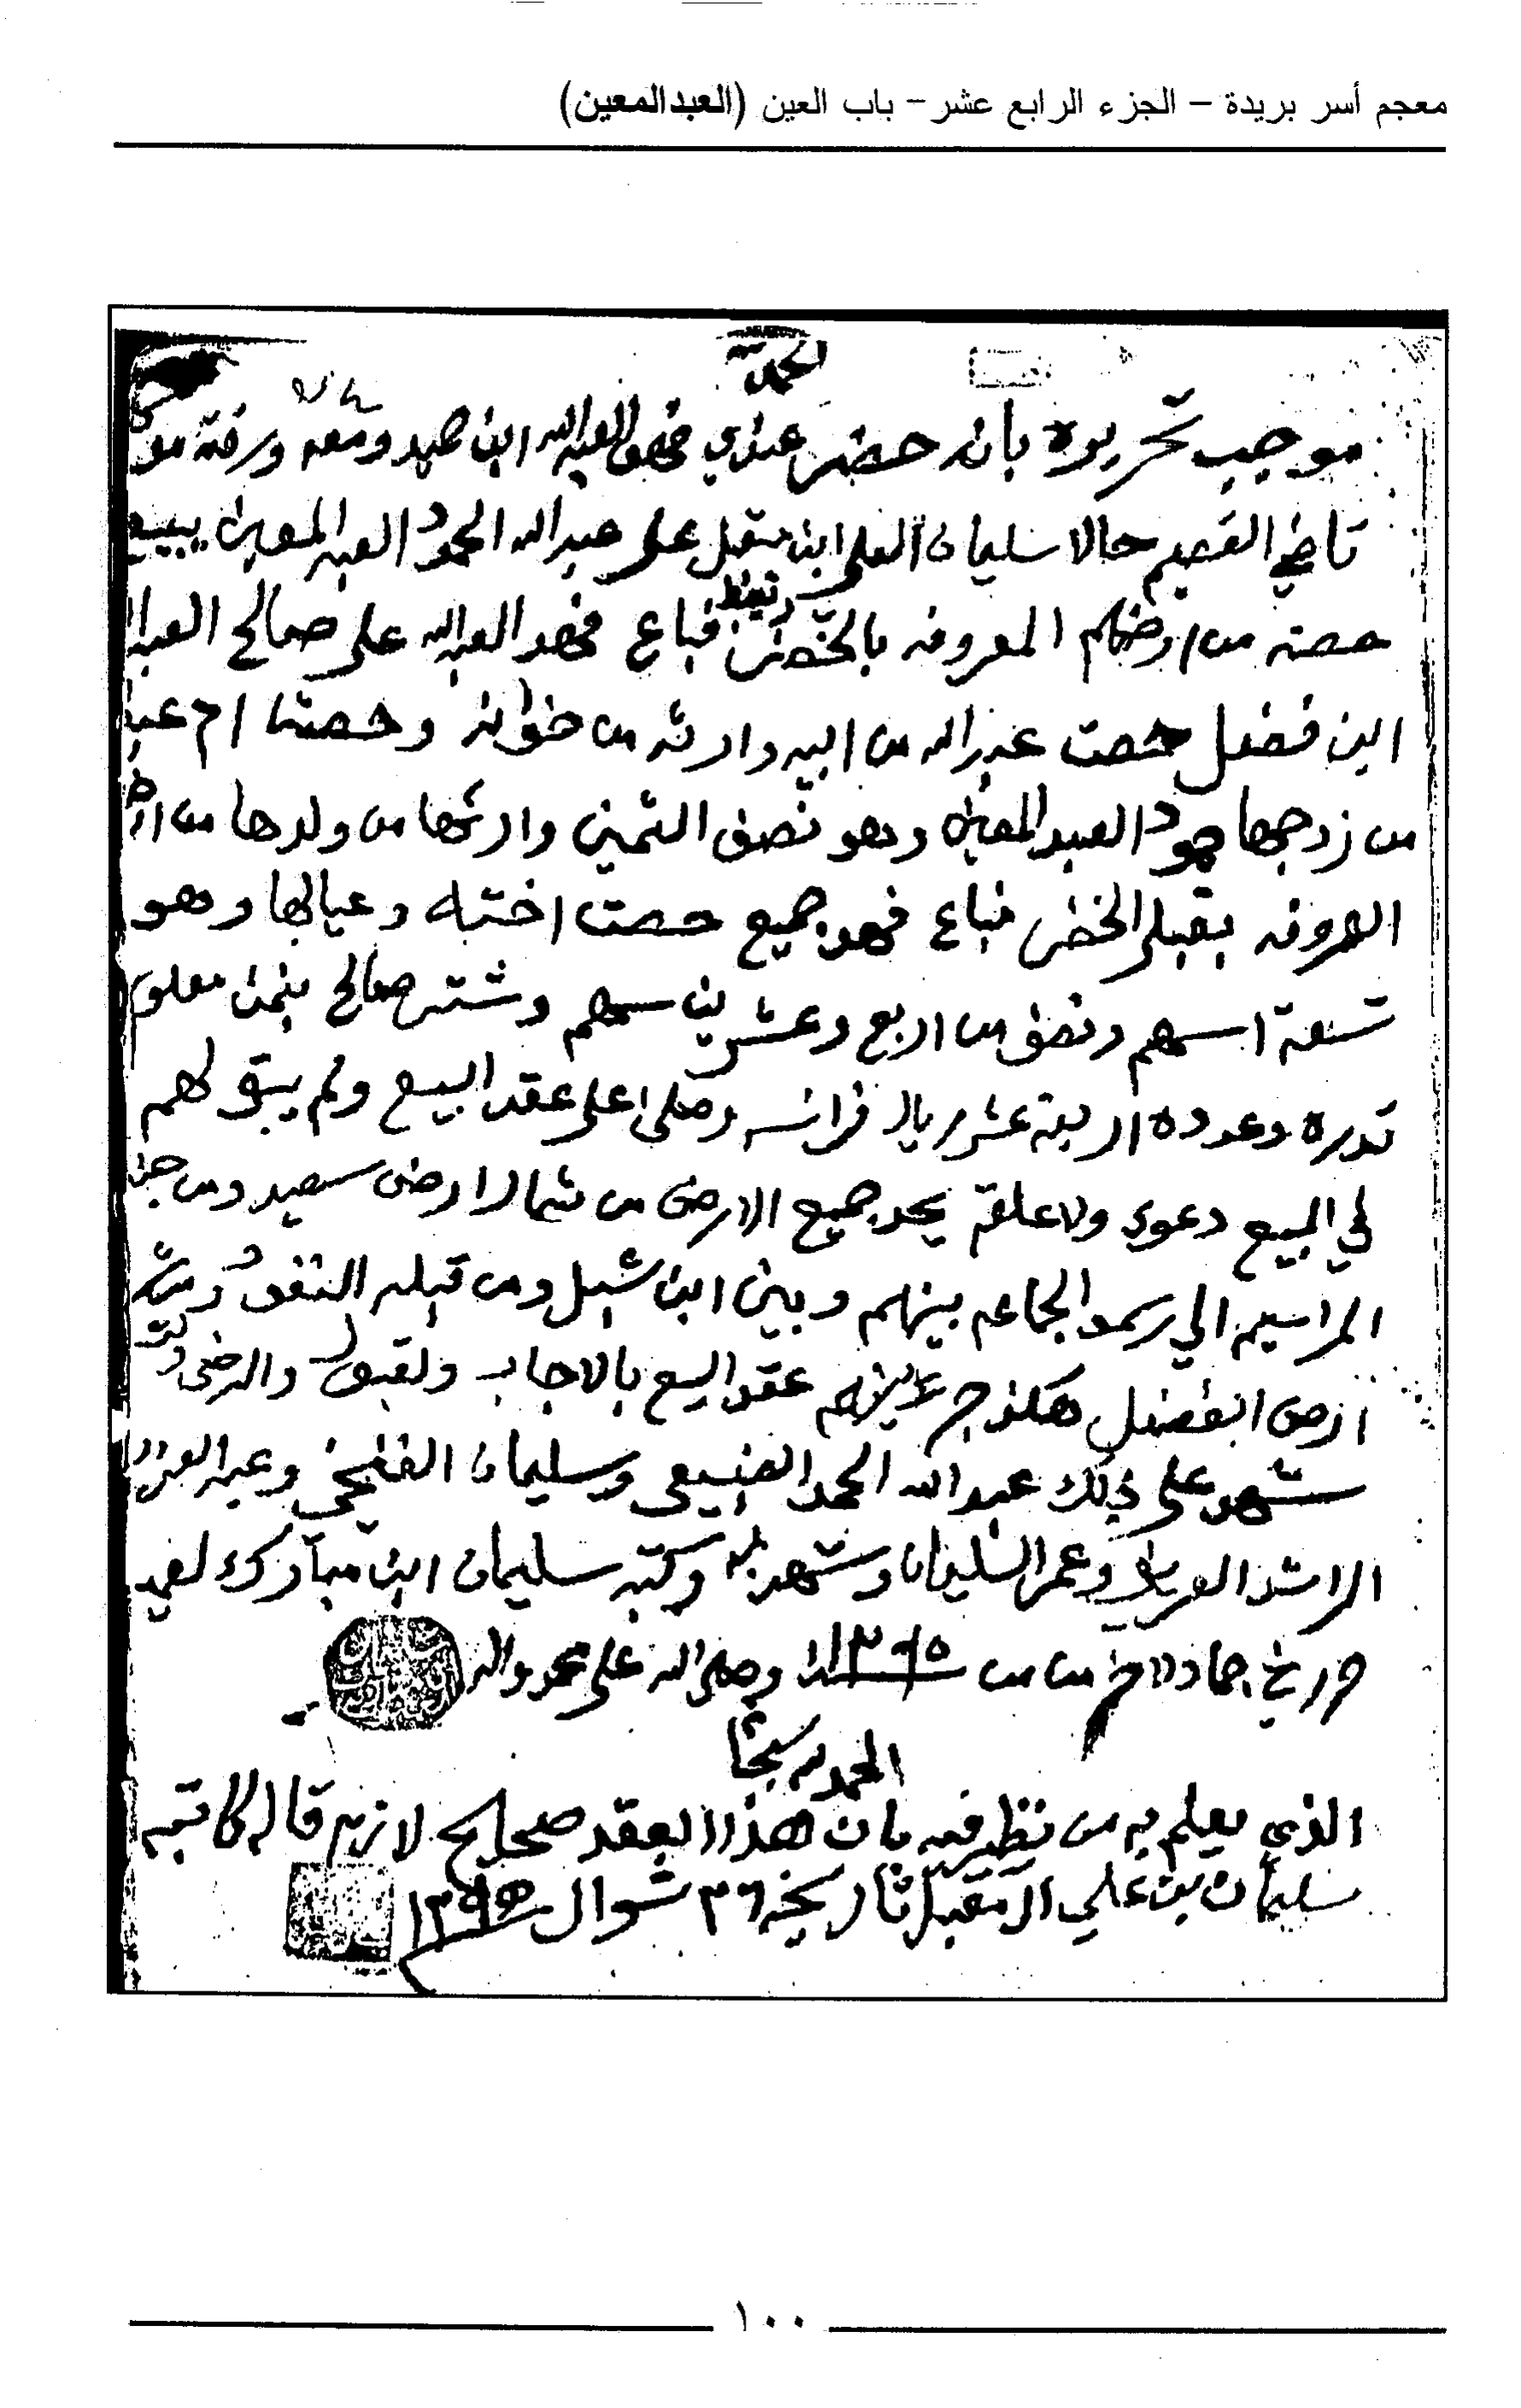 معجم أسر بريدة – الجزء الرابع عشر – باب العين (العبدالمعين)
الحمد لله
موجب تحريره بانه حضر عندي فهد العبدالله ابن ومعه ورقة من
قاضي القصيم حالا سليمان العلي ابن مقبل على عبدالله الحمود العبدالمعين يبيع
حصته من ارضهم المعروفه بالخضر فباع فهد العبدالله على صالح العبدا
ابن فضل حصت عبدالله من ابيه وارثه من خوانه وحصتها ام عبدا
من زوجها حمود العبدالمعين وهو نصف الثمين وارثها من ولدها من
المعروفه بقبلي الخضر فباع فهد جميع حصت اخته وعيالها وهو
تسعة اسهم ونصف من اربع وعشرين سهم وشتر صالح بثمن معلوم
قدره وعدده اربعة عشر ريال فرانسه وصلى على عقد البيع ولم يبق لهم
في المبيع دعوى ولا علقة يحد جميع الارض من شمال ارض سعيد ومن
المراسيم الي رسمه الجماعه بينهم وبين ابن شبل ومن قبله النفود
ارض الفضل هكذا جرى بينهم عقد البيع بالاجاب ولقبول والرضى
شهد على ذلك عبدالله الحمد الضبيعي وسليمان وعبدالعزيز
الراشد وعمر السليمان وشهد به وكتبه سليمان ابن مبارك لعمر
حرر في جمادالاخر من سن وصلى الله على محمد واله
الحمد لله سبحانه
الذي يعلم به من نظر فيه بان هذا العقد صحيح لازم قاله كاتبه
سليمان بن علي المقبل تاريخه ٢٦ شوال ١٢٩٥
١٠٠